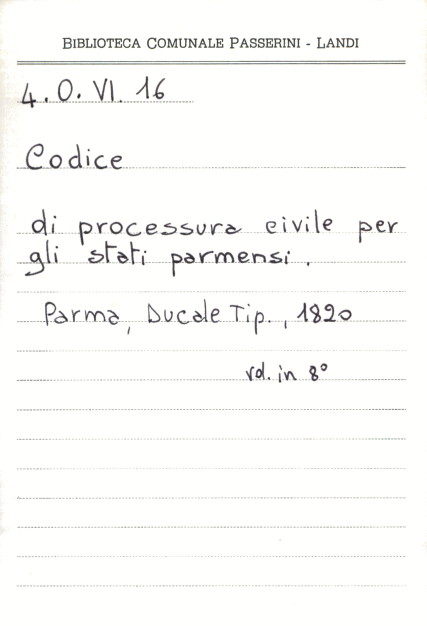 BIBLIOTECA COMUNALE PASSERINI - LANDI
4. O. VI. 16
Codice
di processura civile per
gli stati parmensi.
Parma, Ducale Tip., 1820
vol. in 8°